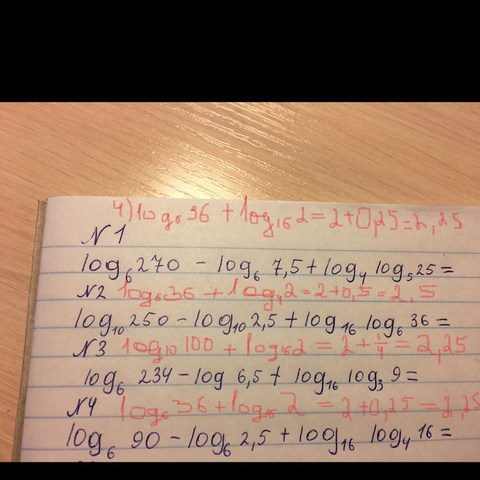 4) log₆36 + log₁₆2 = 2+0,25=2,25
N1
log₆270 - log₆ 7,5 + log₄ log₅25 =
N2 log₆36 + log₄2=2+0,5=2,5
log₁₀250 - log₁₀2,5 + log₁₆ log₆ 36 =
N3 log₁₀100 + log₁₆2 = 2 + 1/4 = 2,25
log₆ 234 - log 6,5 + log₁₆ log₃ 9 =
N4 log₆36 + log₁₆ 2 = 2+0,25=2,25
log₆ 90 - log₆ 2,5 + log₁₆ log₄ 16 =